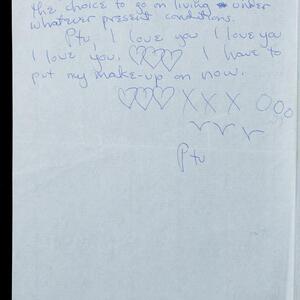 the choice to go on living under
whatever present conditions.
Ptv, I love you I love you
I love you. I have to
put my make-up on now.
X X X O O O
Ptv